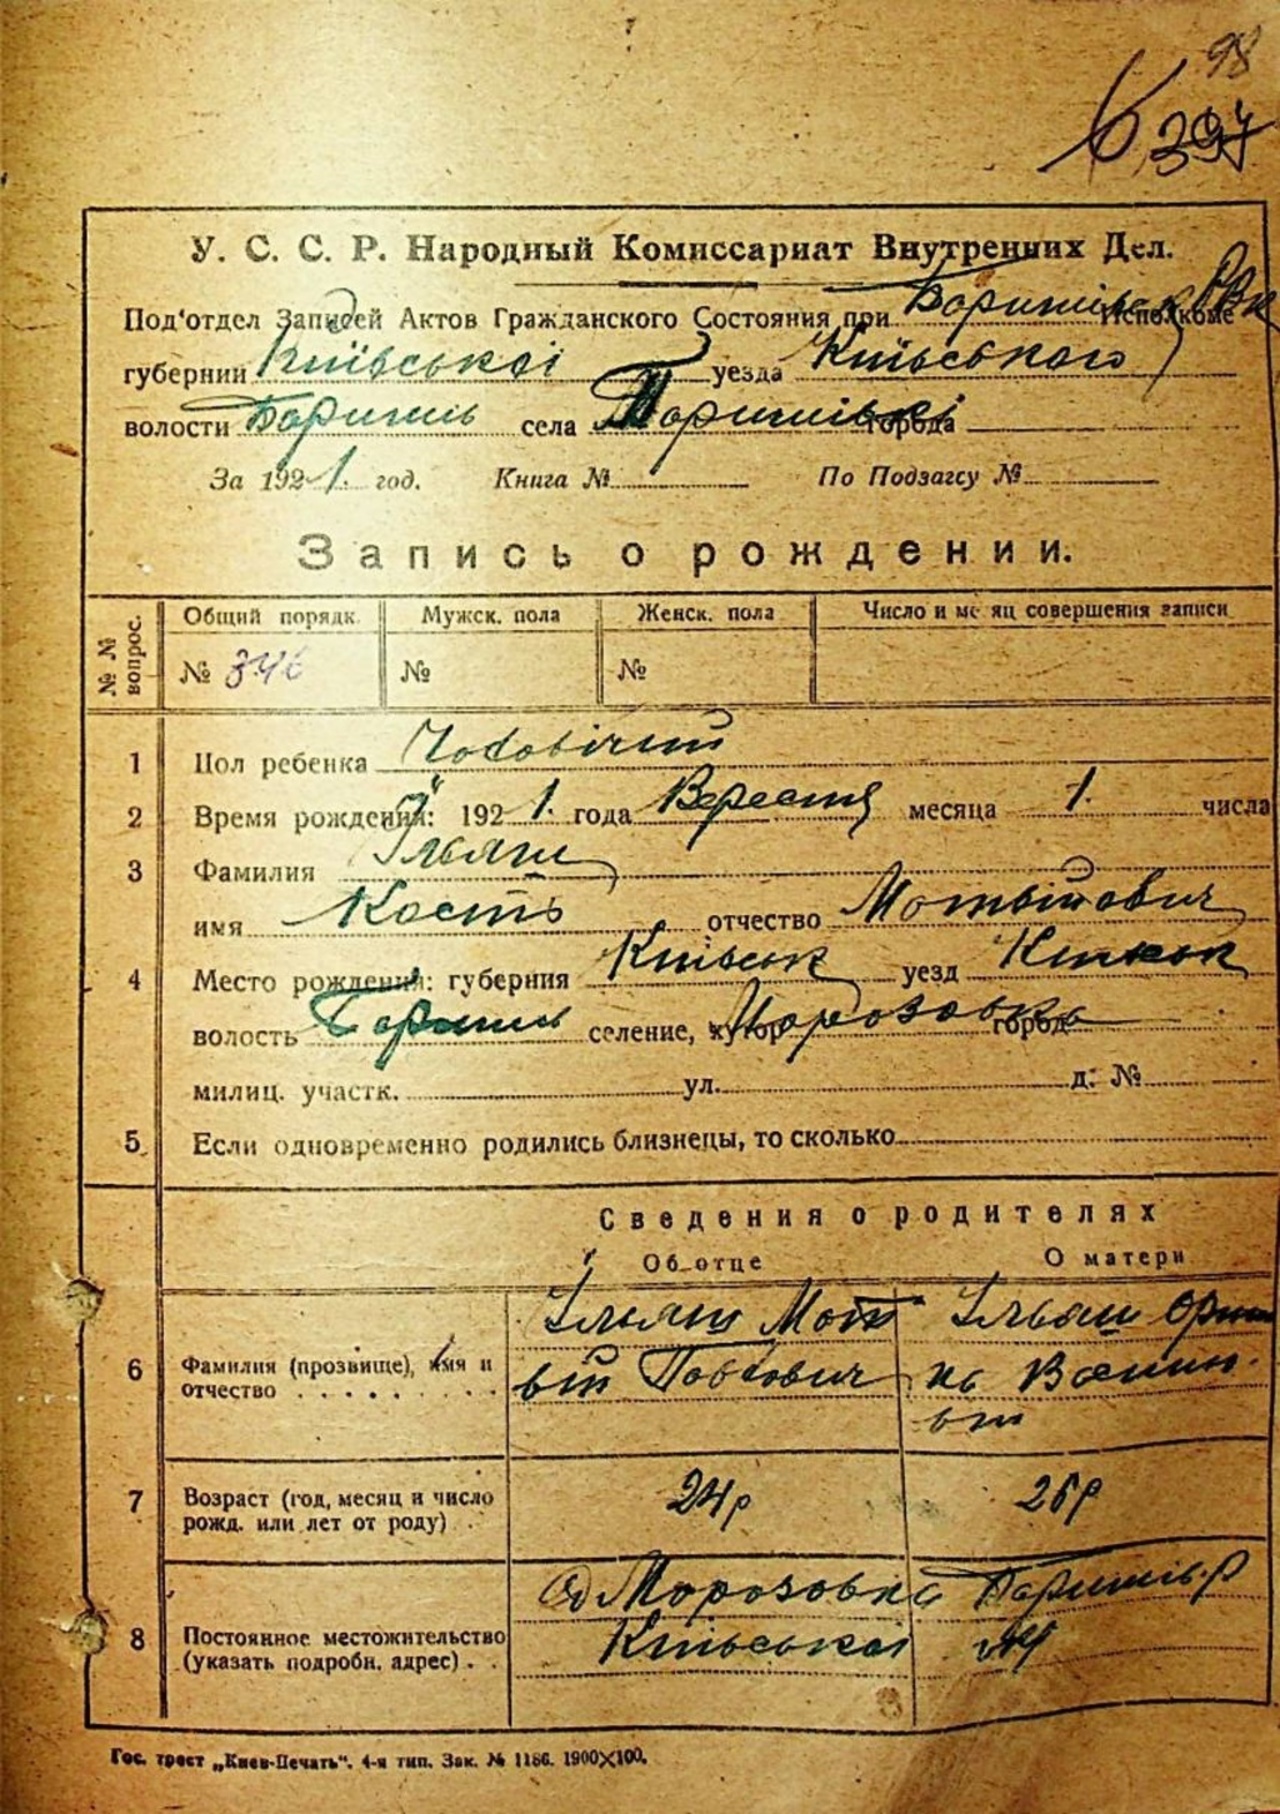 98
397
У. С. С. Р. Народный Комиссариат Внутренних Дел.
Под'отдел Записей Актов Гражданского Состояния при Исполкоме
губернии Київської уезда Київського
волости Бориспіль села города
За 1921. год. Книга № По Подзагсу №
Запись о рождении.
№ № вопрос. Общий порядк. Мужск. пола Женск. пола Число и месяц совершения записи
№ 346 № №
1 Пол ребенка Чоловічий
2 Время рождения: 1921. года Вересня месяца 1. числа
3 Фамилия Ільяш
имя Кость отчество Мотвійович
4 Место рождения: губерния Київськ уезд Київськ
волость Бориспіль селение, хутор город Морозовка
милиц. участк. ул. д. №
5 Если одновременно родились близнецы, то сколько
Сведения о родителях
Об отце О матери
6 Фамилия (прозвище), имя и отчество
Ільяш Мот Ільяш Ори
вій Павлович на
7 Возраст (год, месяц и число рожд. или лет от роду)
24р 26р
8 Постоянное местожительство (указать подробн. адрес)
Морозовка
Київської
Гос. трест „Киев-Печать“. 4-я тип. Зак. № 1186. 1900×100.